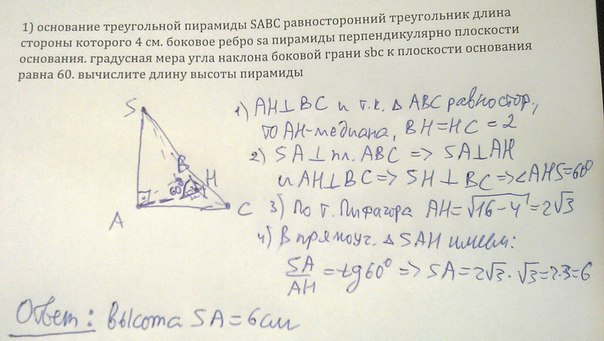 1) основание треугольной пирамиды SABC равносторонний треугольник длина
стороны которого 4 см. боковое ребро sa пирамиды перпендикулярно плоскости
основания. градусная мера угла наклона боковой грани sbc к плоскости основания
равна 60. вычислите длину высоты пирамиды
S
B
60°
H
A
C
1) AH⊥BC и т.к. △ABC равностор,
то AH-медиана, BH=HC=2
2) SA⊥пл. ABC => SA⊥AH
и AH⊥BC => SH⊥BC => ∠AHS=60°
3) По т. Пифагора AH=√16-4=2√3
4) В прямоуг. △SAH имеем:
SA/AH=tg60° => SA=2√3·√3=2·3=6
Ответ: высота SA=6см